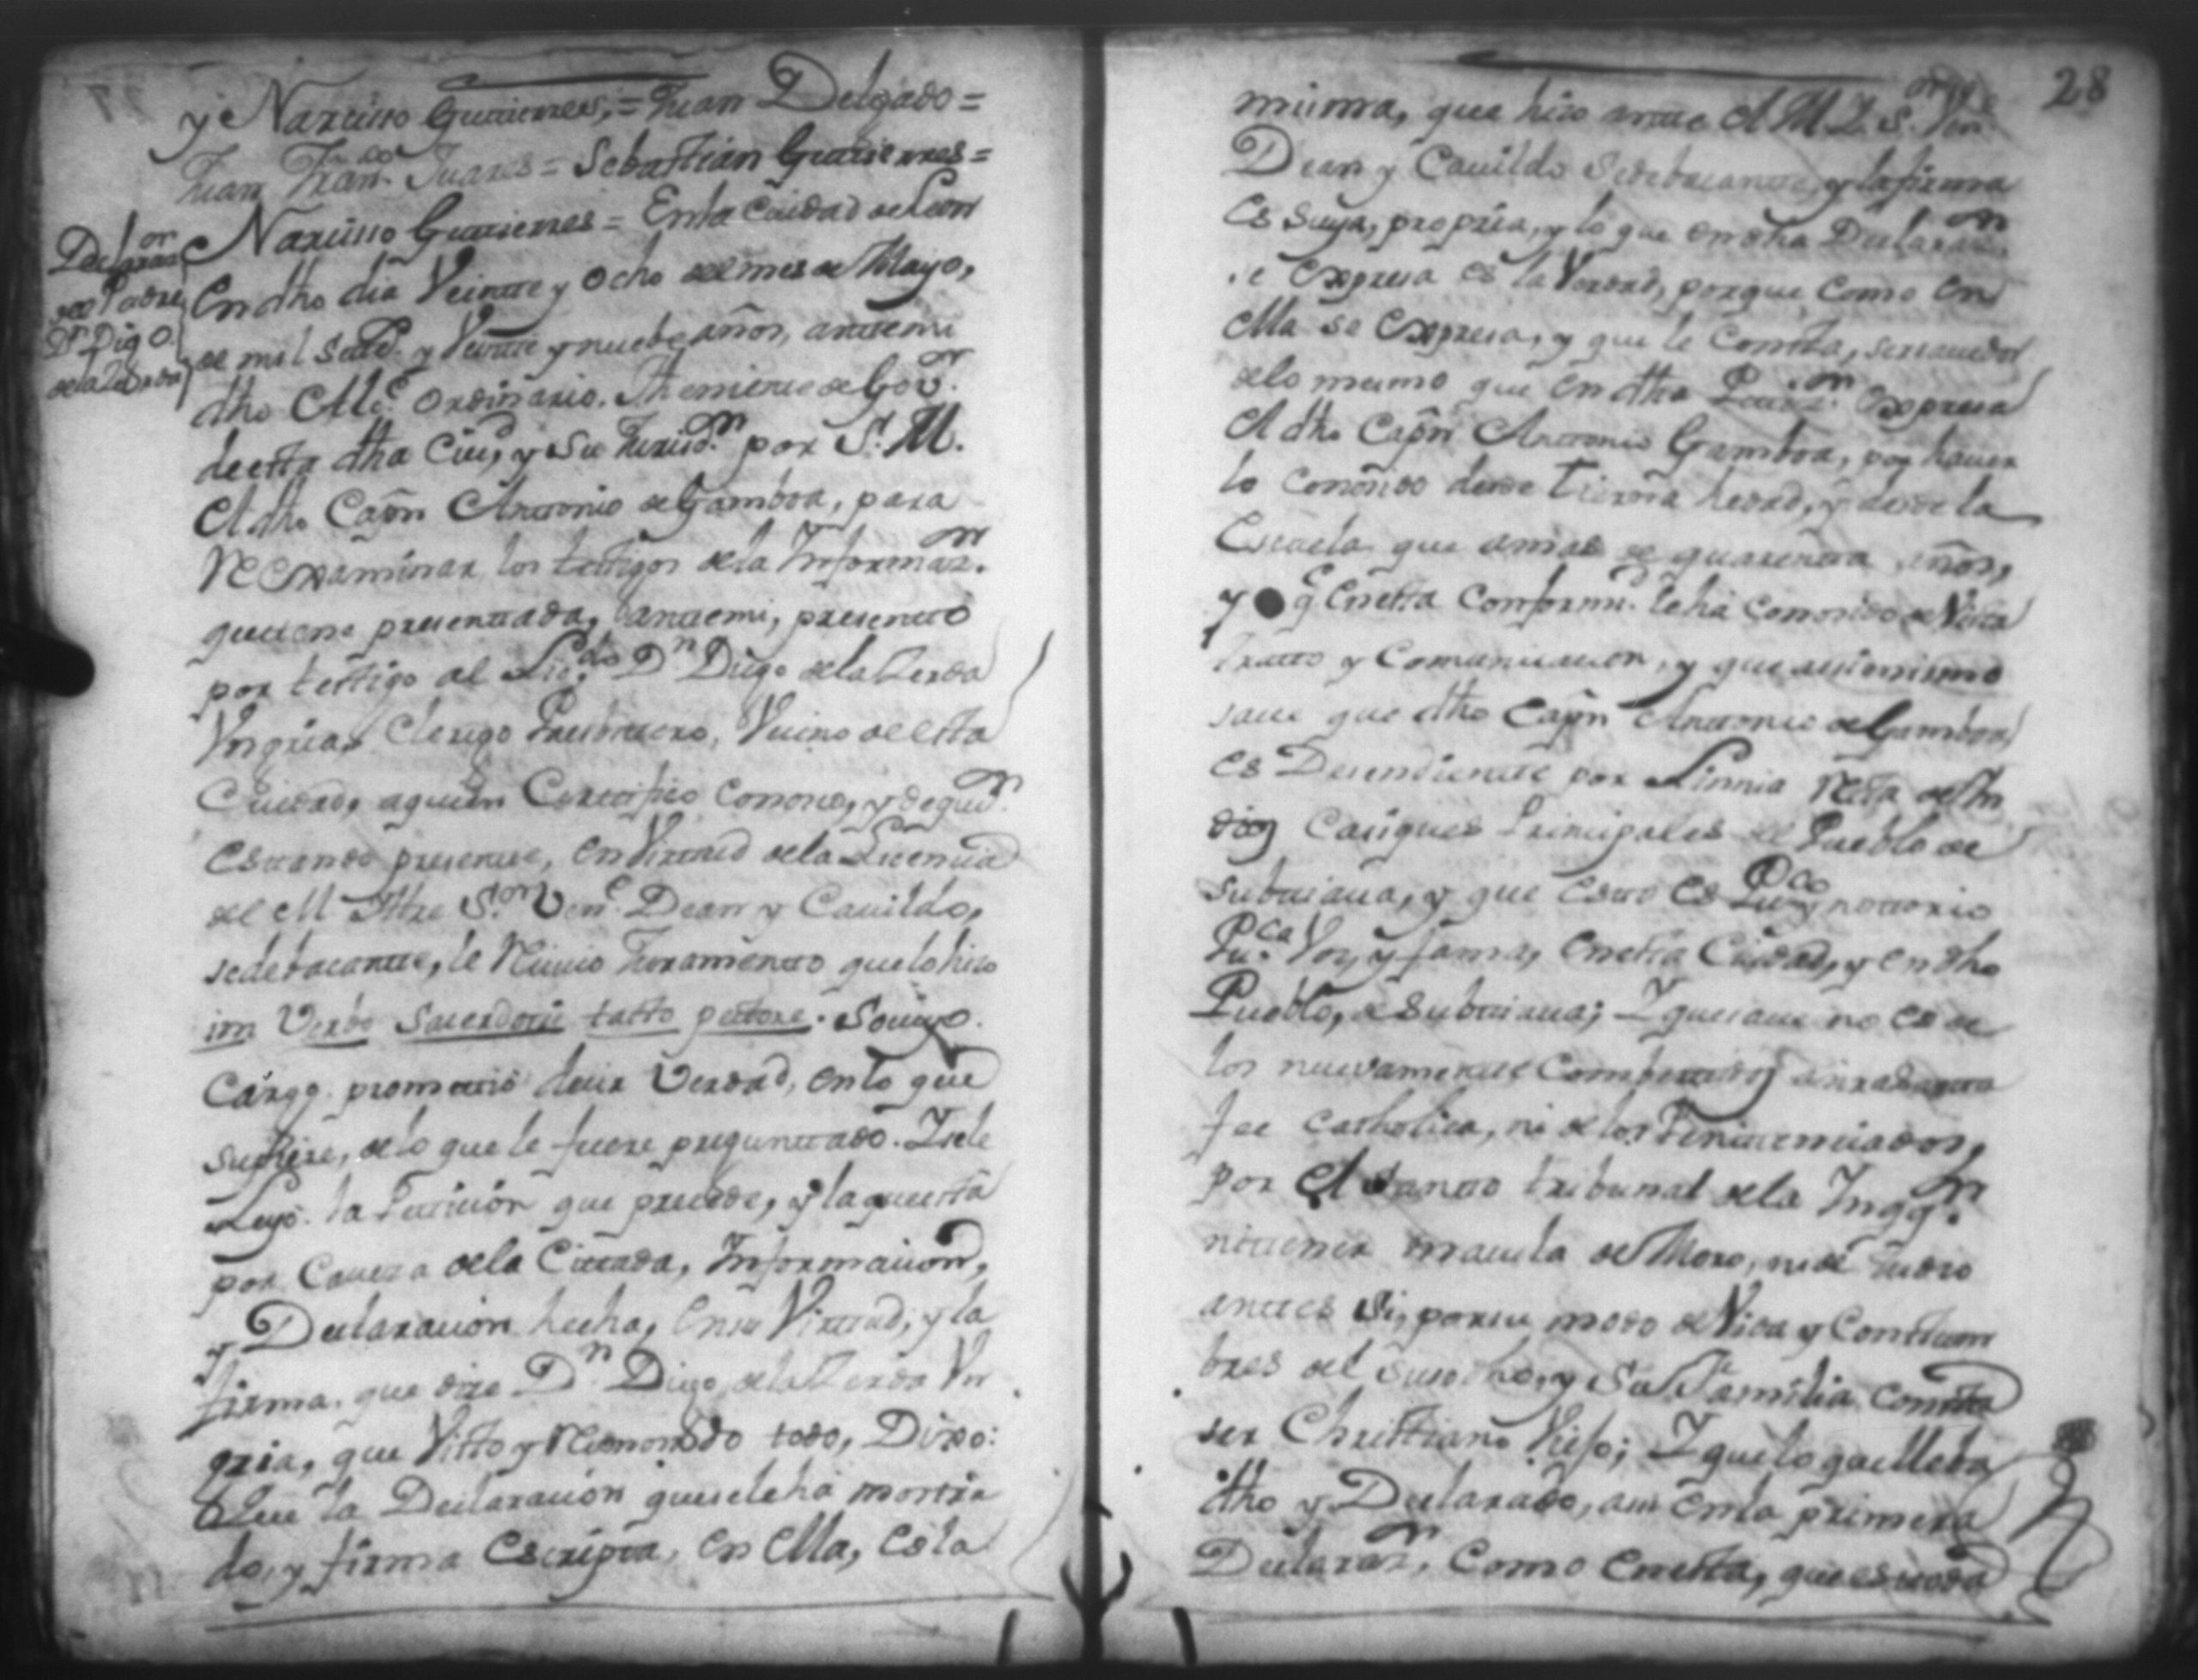 y Narcisso Gutierres, = Juan Delgado =
Juan Fran.co Juares = Sebastian Gutierres =
Narcisso Gutierres = Enla Ciudad de Leon
En dho dia Veinte y Ocho del mes de Mayo,
de mil Setes.s y Veinte y nuebe años, antemi
dho Alc.e Ordinario. Theniente de Gov.or
de esta dha Ciu.d y su Jurisd.n por S. M.
El dho Capn Antonio de Gamboa, para
Reexaminar los testigos dela Informaz.on
que tiene presentada, antemi, presento
por testigo al Lic.do D.n Diego dela Zerda
Ungria, Clerigo Presbitero, Vecino de esta
Ciudad, aquien Certifico Conosco, y de quien
Estando presente, en Virtud dela Licencia
del M Iltre S.or Ven.e Dean y Cavildo,
sedebacante, le Recivio Juramento que lo hiso
in Verbo Sacerdotis tatto pectore. So cuyo
Cargo prometio decir Verdad, en lo que
supiere, de lo que le fuere preguntado. Y sele
Leyo la Peticion que precede, y la puesta
por Caveza dela Citada, Informacion,
y Declaracion hecha, en su Virtud, y la
firma que dice D.n Diego dela Zerda Un
gria, que Visto y Reconosido todo, Dixo:
Que la Declaracion que sele ha mostra
do, y firma Escripta, en Ella, es la
Declaraz.on
del Padre
D.n Diego
dela Zerda
28
misma, que hiso ante El M. Y. S.or Ven.e
Dean y Cavildo Sedebacante, y la firma
Es Suya, propria, y lo que en dha Declaraz.on
se Expresa es la Verdad, porque como en
Ella se Expresa, y que le Consta, ser
delo mismo que en dha Petiz.on Expresa
El dho Capn Antonio Gamboa, por haver
lo Conosido desde tierna hedad, y desde la
Escuela que amas de quarenta años,
y q.e En esta Conformi.d le ha Conosido de Vista
tratto y Comunicacion, y que assimismo
save que dho Capn Antonio de Gamboa
es Descendiente por Linnia Recta de In
dios Casiques Principales del Pueblo de
Subtiava, y que Esto es Pu.co y nottorio
Pu.ca Voz, y fama, En esta Ciudad, y en dho
Pueblo, de Subtiava; Y que save no es de
los nuevamente Combertidos a nra santa
fee Catholica, ni delos Penitenciados,
por El Santo tribunal dela Inqq.on
ni tener macula de Moro, ni de Judio
antes Si, por su modo de Vida y Constum
bres del Susodho, y Su Familia Consta
ser Christiano Viejo; Y que lo que lleba
dho y Declarado, assi En la primera
Declaraz.on, Como En esta, que es toda